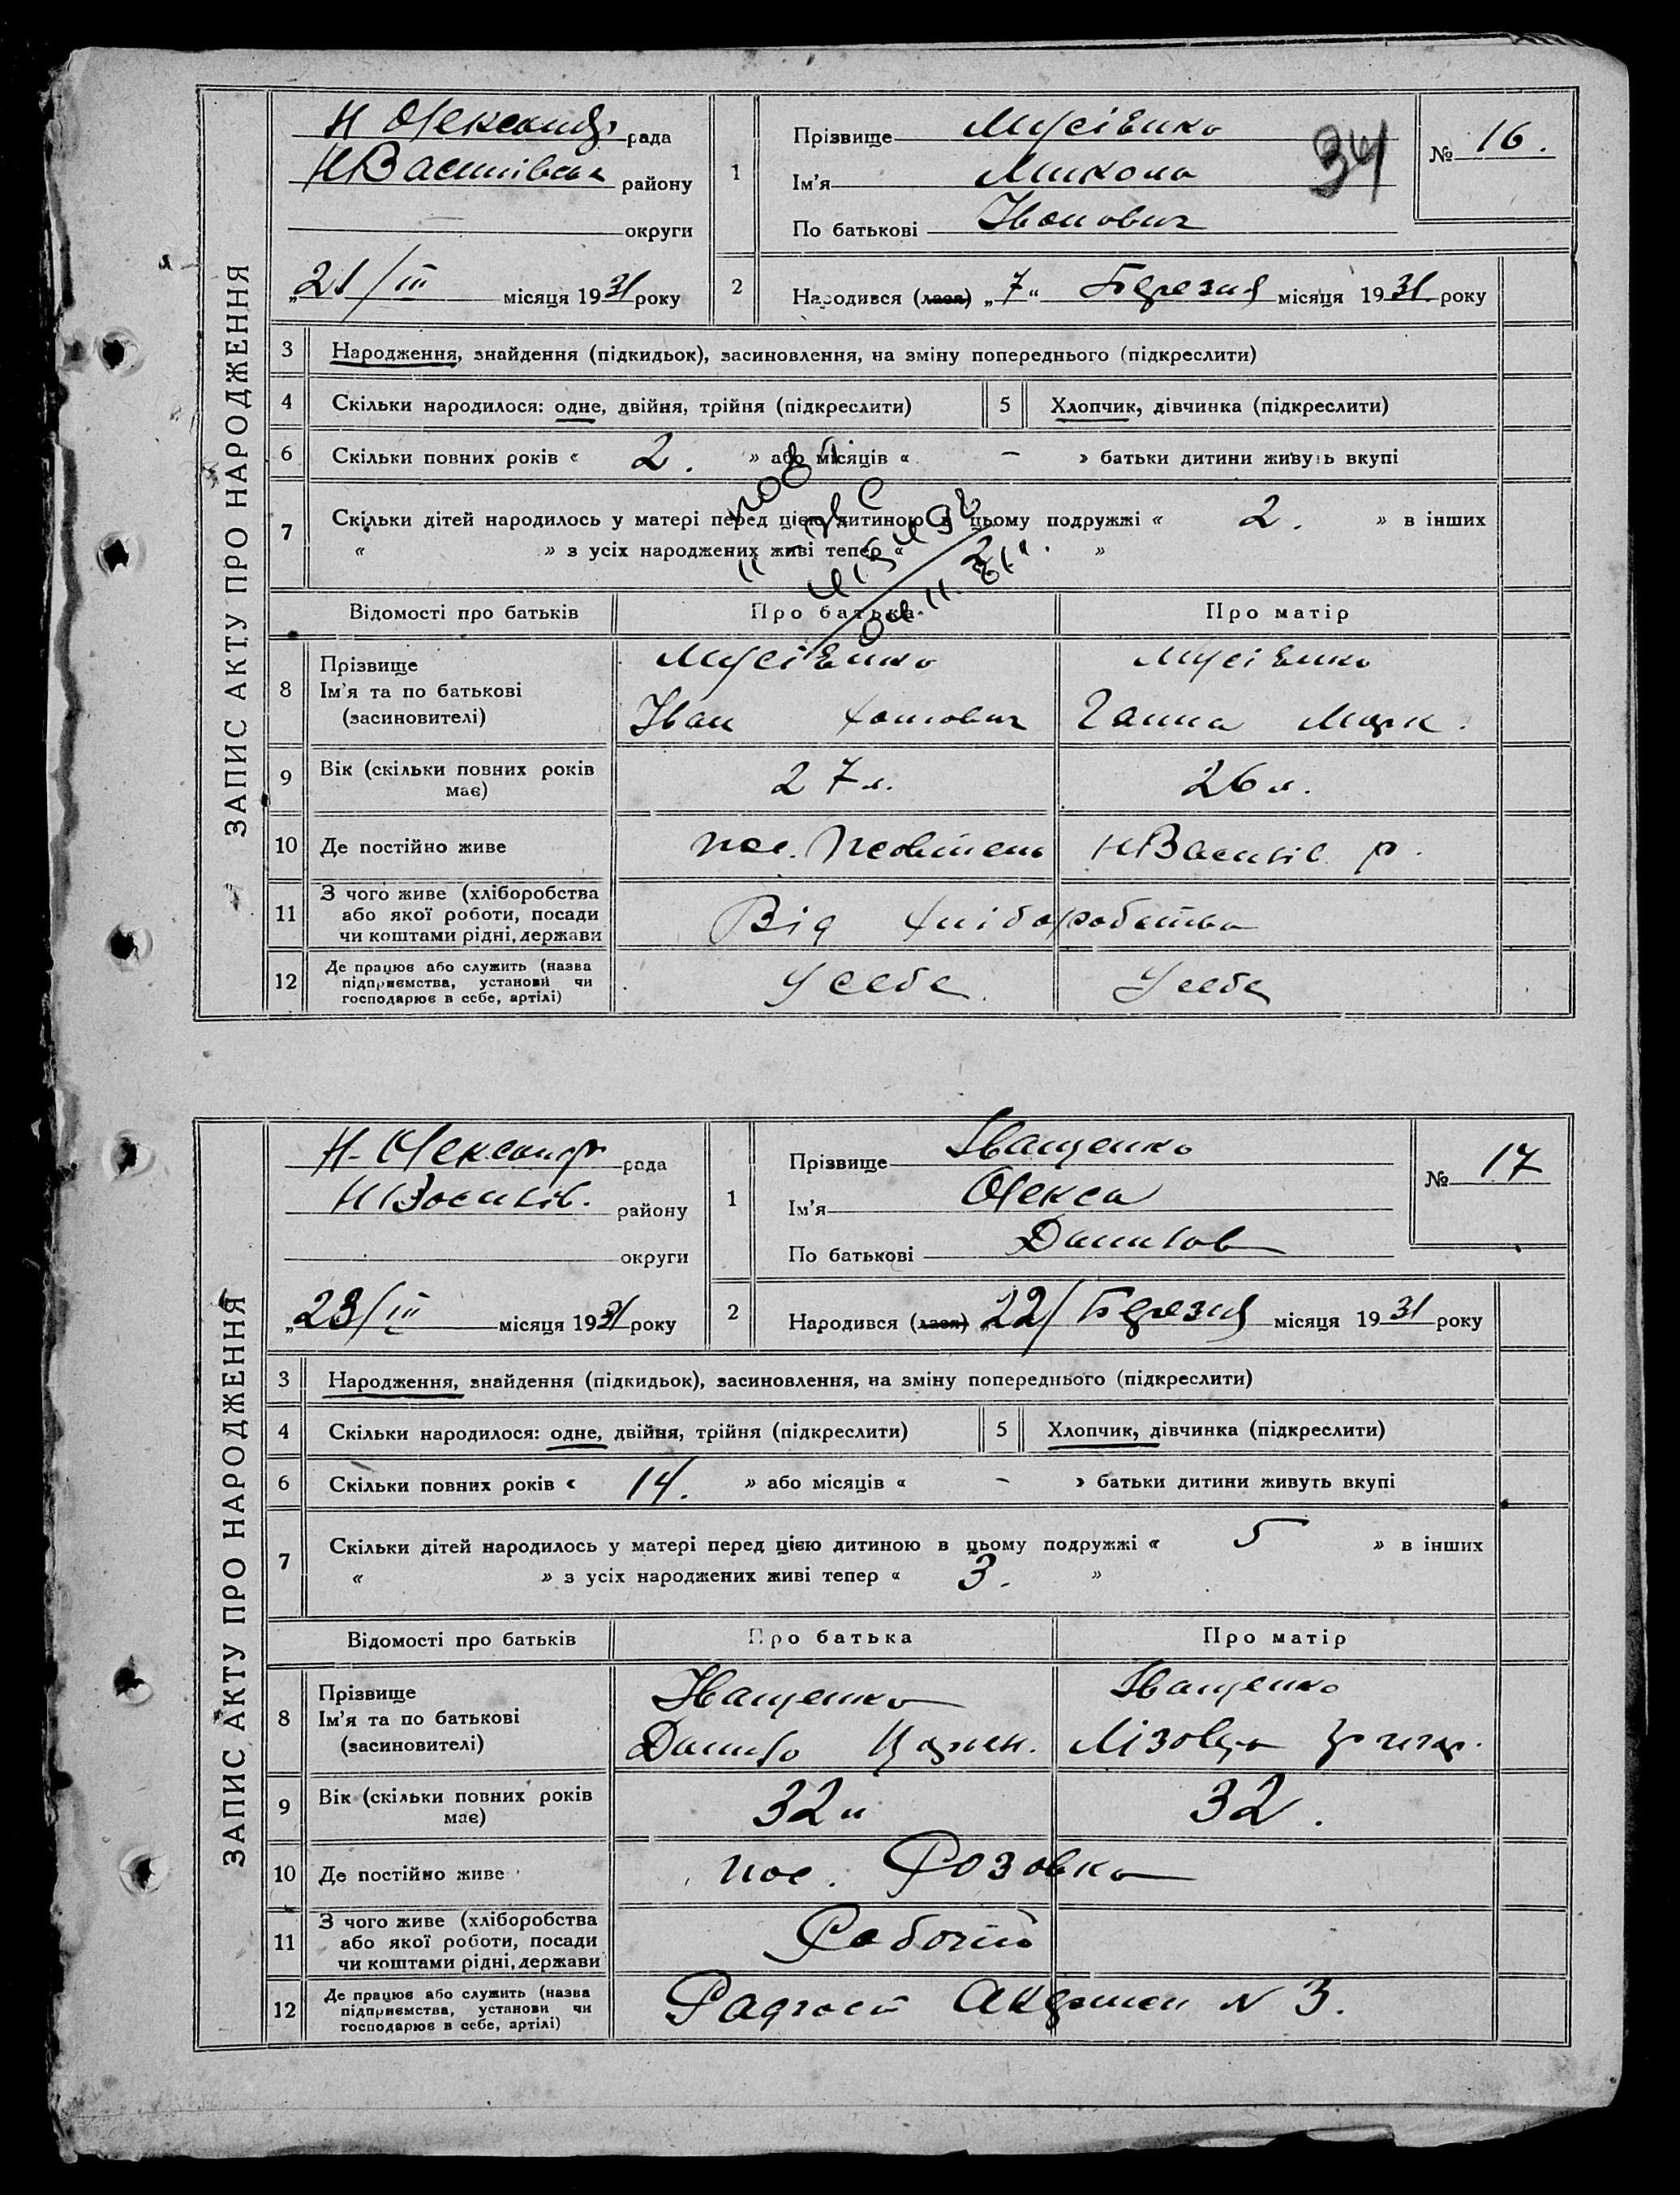 ЗАПИС АКТУ ПРО НАРОДЖЕННЯ
Н Олександр рада
НВасилівськ району
округи
„21/III місяця 1931 року
1
Прізвище Мусієнко
Ім'я Микола
По батькові Іванович
34
№ 16.
2
Народився (лася) „7“ Березня місяця 1931 року
3 Народження, знайдення (підкидьок), засиновлення, на зміну попереднього (підкреслити)
4 Скільки народилося: одне, двійня, трійня (підкреслити) 5 Хлопчик, дівчинка (підкреслити)
6 Скільки повних років « 2. » або місяців « – » батьки дитини живуть вкупі
7 Скільки дітей народилось у матері перед цією дитиною в цьому подружжі « 2. » в інших
« » з усіх народжених живі тепер « 2. »
Відомості про батьків Про батька Про матір
8 Прізвище Мусієнко Мусієнко
Ім'я та по батькові Іван Ганна Марк.
(засиновителі)
9 Вік (скільки повних років має) 27 л. 26 л.
10 Де постійно живе пос. НВасилів р.
11 З чого живе (хліборобства
або якої роботи, посади Від хліборобства
чи коштами рідні, держави
12 Де працює або служить (назва
підприємства, установи чи У себе. У себе
господарює в себе, артілі)
ЗАПИС АКТУ ПРО НАРОДЖЕННЯ
Н-Олександр рада
НВасилів. району
округи
„23/III місяця 1931 року
1
Прізвище Іващенко
Ім'я Олекса
По батькові Данилов
№ 17
2
Народився (лася) „22/ Березня місяця 1931 року
3 Народження, знайдення (підкидьок), засиновлення, на зміну попереднього (підкреслити)
4 Скільки народилося: одне, двійня, трійня (підкреслити) 5 Хлопчик, дівчинка (підкреслити)
6 Скільки повних років « 14. » або місяців « – » батьки дитини живуть вкупі
7 Скільки дітей народилось у матері перед цією дитиною в цьому подружжі « 5 » в інших
« » з усіх народжених живі тепер « 3. »
Відомості про батьків Про батька Про матір
8 Прізвище Іващенко Іващенко
Ім'я та по батькові Данило Григор.
(засиновителі)
9 Вік (скільки повних років має) 32 л 32.
10 Де постійно живе пос. Розовка
11 З чого живе (хліборобства
або якої роботи, посади Робочий
чи коштами рідні, держави
12 Де працює або служить (назва
підприємства, установи чи Радгосп N 3.
господарює в себе, артілі)